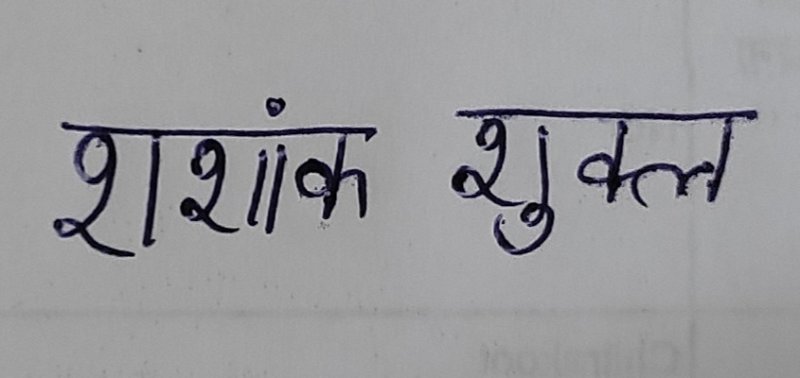 शशांक शुक्ल